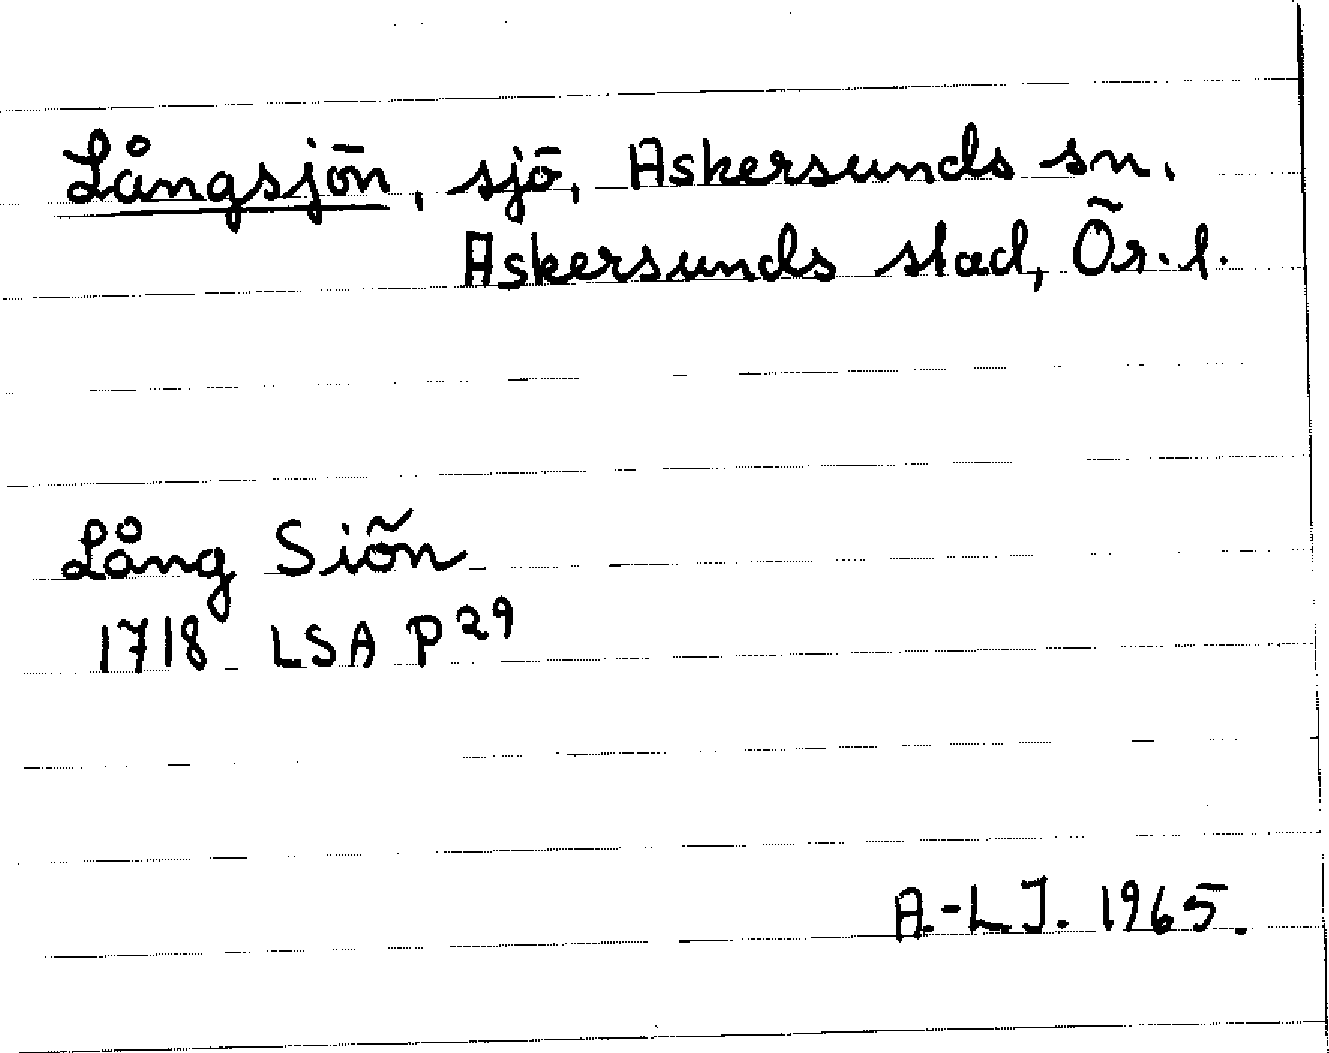 Långsjön, sjö, Askersunds sn.
Askersunds stad, Ör. l.
Lång Siön
1718 LSA P 29
A.-L J. 1965.